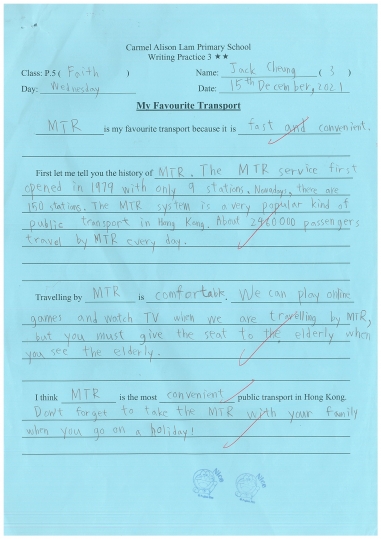 Carmel Alison Lam Primary School
Writing Practice 3 ★★
Class: P.5 ( Faith ) Name: Jack Cheung ( 3 )
Day: Wednesday Date: 15th December, 2021
My Favourite Transport
MTR is my favourite transport because it is fast and convenient.
First let me tell you the history of MTR. The MTR service first
opened in 1979 with only 9 stations. Nowadays, there are
150 stations. The MTR system is a very popular kind of
public transport in Hong Kong. About 2960000 passengers
travel by MTR every day.
Travelling by MTR is comfortable. We can play online
games and watch TV when we are travelling by MTR,
but you must give the seat to the elderly when
you see the elderly.
I think MTR is the most convenient public transport in Hong Kong.
Don't forget to take the MTR with your family
when you go on a holiday!
Nice
Nice